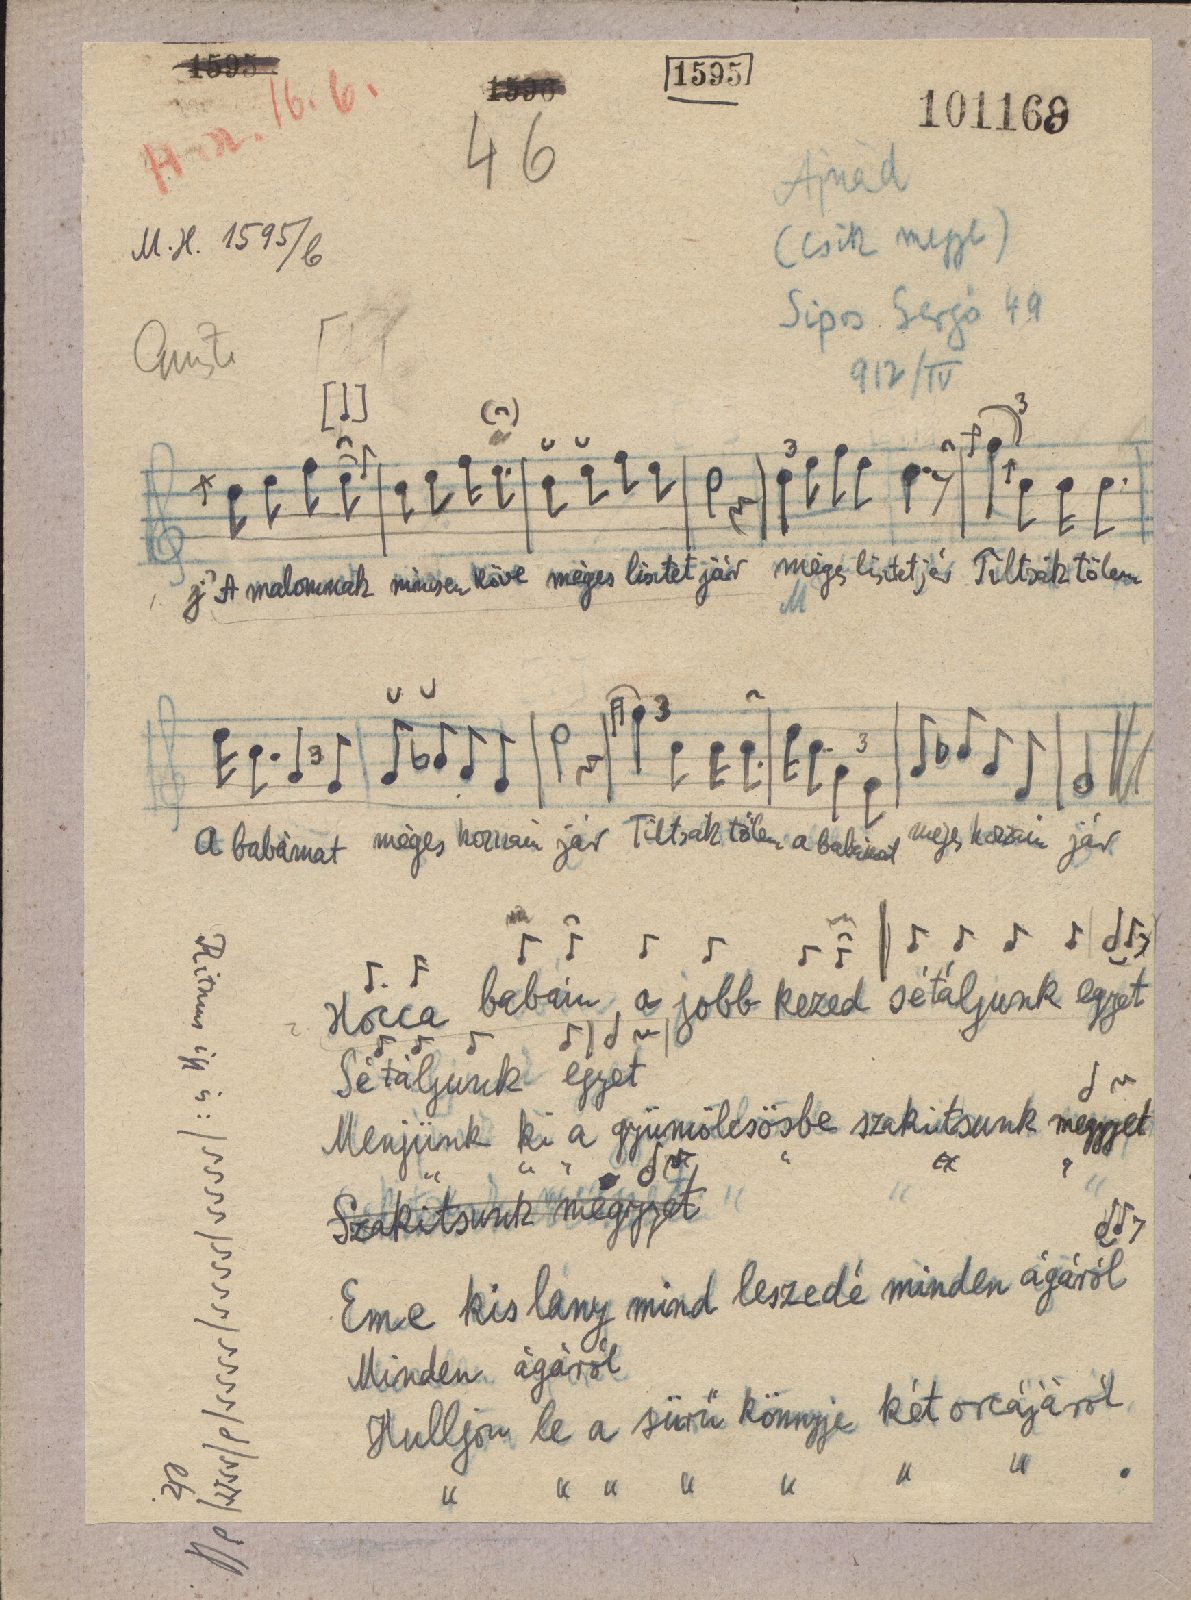 1595
1595
16. 6.
46
101169
M.H. 1595/b
Ajnád
(Csík megye)
Sipos Gergő 49
912/IV
A malomnak nincsen köve méges lisztet jár méges lisztet jár Tiltsák tőlem
A babámat méges hozzám jár Tiltsák tőlem a babámat méges hozzám jár
Hocca babám a jobb kezed sétáljunk egyet
Sétáljunk egyet
Menjünk ki a gyümölcsösbe szakitsunk megyyet
" " " " " " "
Szakitsunk mëgyyet
Eme kis lány mind leszedé minden ágáról
Minden ágáról
Hulljon le a sürü könnyje két orcájáról
" " " " " " " .
Ritmus így is: